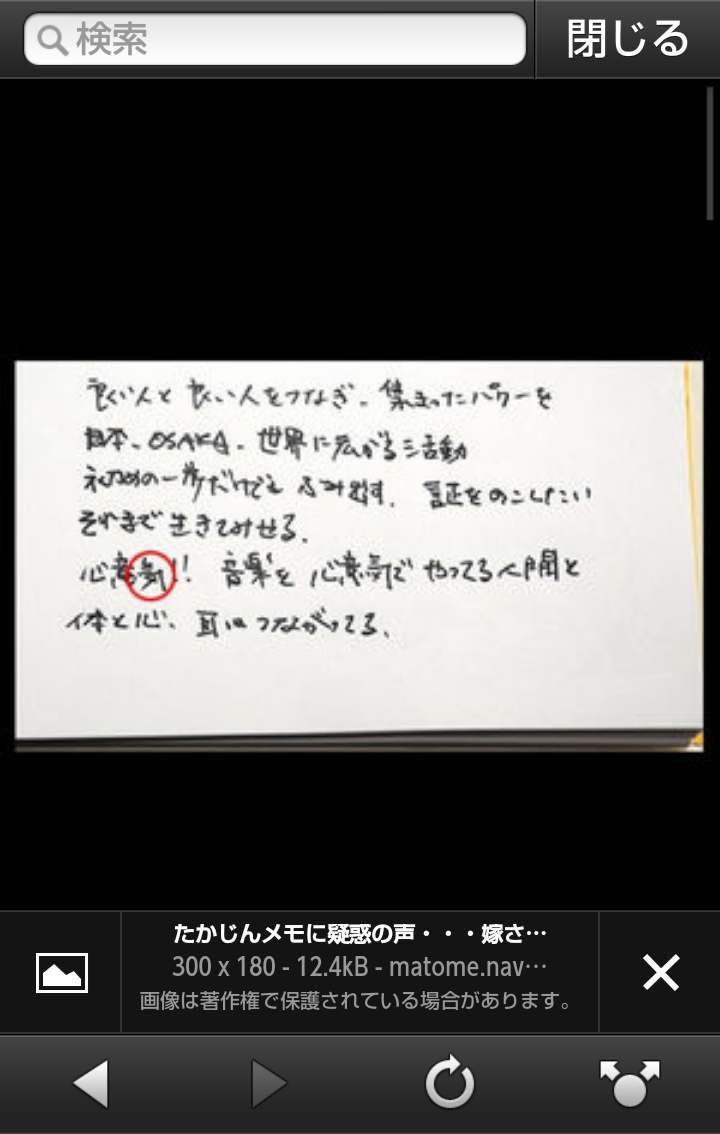 検索
閉じる
良い人と良い人をつなぎ、集まったパワーを
日本、OSAKA、世界に広がる活動
初めの一歩だけでも ふみ出す、証をのこしたい
それまで生きてみせる、
心意気!! 音楽を心意気でやってる人間と
体と心、耳はつながってる、
たかじんメモに疑惑の声・・・嫁さ…
300 x 180 - 12.4kB - matome.nav…
画像は著作権で保護されている場合があります。